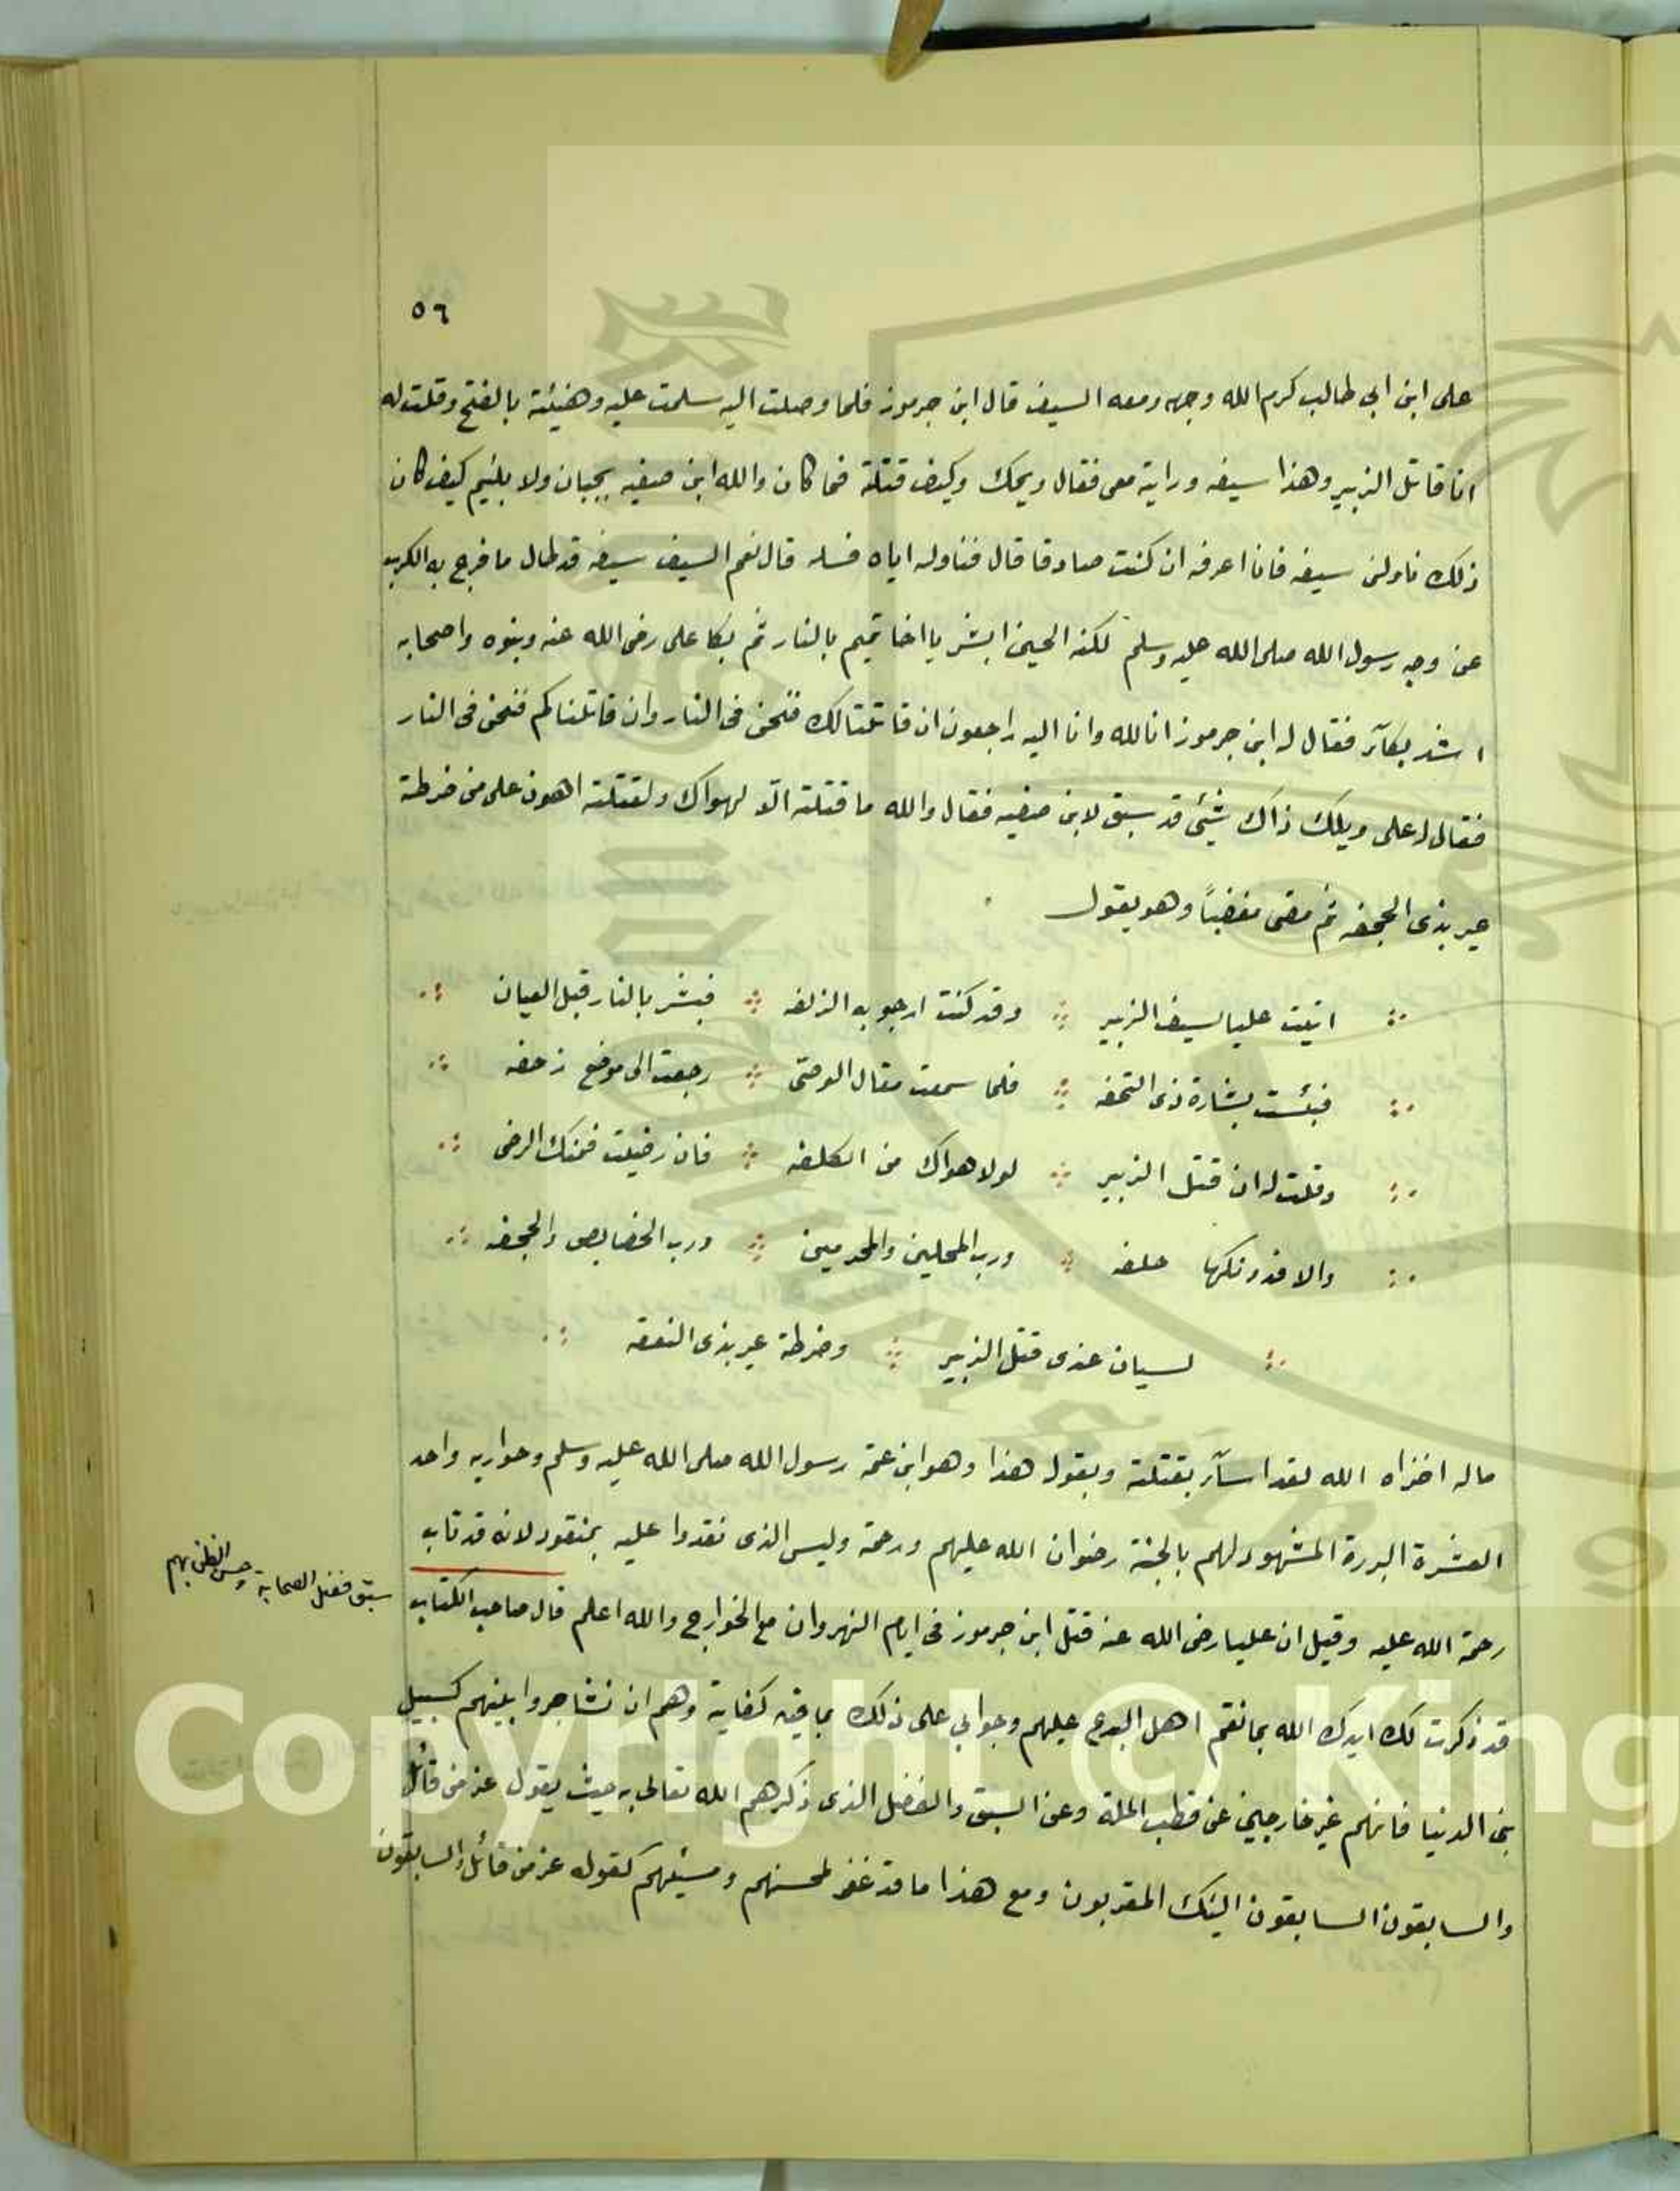 ٥٦
على ابن ابي طالب كرم الله وجهه ومعه السيف قال ابن جرموز فلما وصلت اليه سلمت عليه وهنيئة بالفتح وقلت له
انا قاتل الزبير وهذا سيفه ورايته معي فقال ويحك وكيف قتلة فما كان والله ابن صفيه بجبان ولا بلئيم كيف كان
ذلك ناولنى سيفه فانا اعرفه ان كنت صادقا قال فناوله اياه فسله قال نعم السيف سيفه قد طال ما فرج به الكرب
عن وجه رسول الله صلى الله عليه وسلم لكنه الحين ابشر يا اخا تميم بالنار ثم بكا على رضى الله عنه وبنوه واصحابه
اشد بكآء فقال له ابن جرموز انا لله وانا اليه راجعون ان قاتلنا لك فنحن فى النار وان قاتلناكم فنحن فى النار
فقال له على ويلك ذاك شيئ قد سبق لابن صفيه فقال والله ما قتلته الا لهواك ولقتلته اهون على من ضرطة
عير بذى الجحفه ثم مضى مغضباً وهو يقول
اتيت عليا بسيف الزبير وقد كنت ارجو به الزلفه فبشر بالنار قبل العيان
فبئست بشارة ذى التحفه فلما سمعت مقال الوصى رجعت الى موضع زحفه
وقلت له ان قتل الزبير لولا هواك من الكلفه فان رضيت فمنك الرضى
والا فدونكها حلفه ورب المحلين والمحرمين ورب الخصايص والجحفه
لسيان عندى قتل الزبير وضرطة عير بذى النعقه
ماله اخزاه الله لقد اسآء بقتلة وبقوله هذا وهو ابن عمة رسول الله صلى الله عليه وسلم وحواريه واحد
العشرة البررة المشهود لهم بالجنة رضوان الله عليهم ورحمة وليس الذى نقدوا عليه بمنقود لانه قد تاب
رحمة الله عليه وقيل ان عليا رضى الله عنه قتل ابن جرموز فى ايام النهروان مع الخوارج والله اعلم قال صاحب الكتاب
سبق فضل الصحابة وحسن الظن بهم
قد ذكرت لك ايدك الله بما نقم اهل البدع عليهم وجوابي على ذلك بما فيه كفاية وهم ان تشاجروا بينهم كسبيل
بنى الدنيا فانهم غير خارجين عن قطب الملة وعن السبق والفضل الذى ذكرهم الله تعالى به حيث يقول عز من قائل
والسابقون السابقون اليئك المقربون ومع هذا ما قد غفر لمحسنهم ومسيئهم كقوله عز من قائل والسابقون
Copyright © King